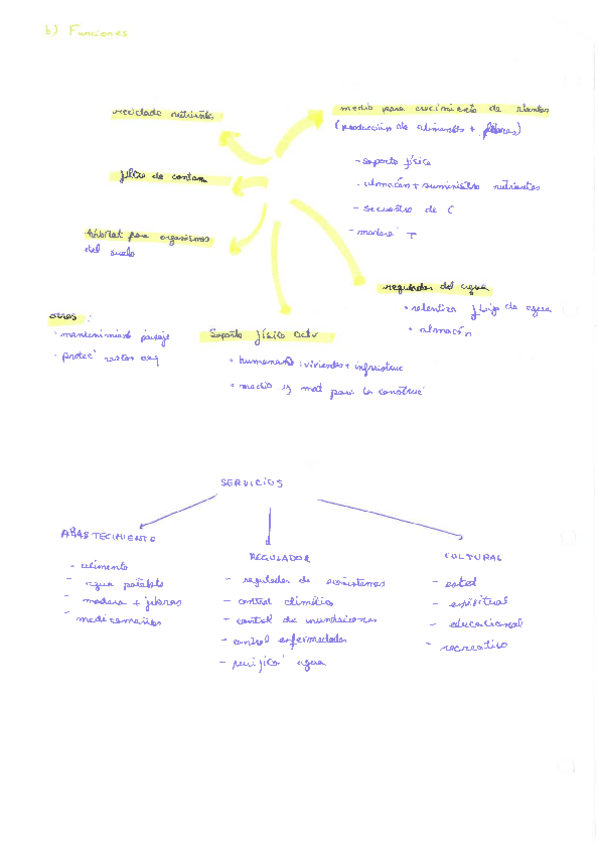 b) Funciones
reciclado nutrientes
medio para crecimiento de plantas
(producción de alimentos + fibras)
- soporte física
- almacén + suministro nutrientes
- secuestro de C
- madera
filtro de contam
hábitat para organismos
del suelo
regulador del agua
• relentiza flujo de agua
• almacén
otros:
• mantenimiento paisaje
• protec restos arq
Soporte físico activ
• humanas: viviendas + infraestruc
• medio y mat para la construc
SERVICIOS
ABASTECIMIENTO
- alimento
- agua potable
- madera + fibras
- medicamentos
REGULADOR
- regulador de ecosistemas
- control climático
- control de inundaciones
- control enfermedades
- purific agua
CULTURAL
- estet
- espiritual
- educacional
- recreativo